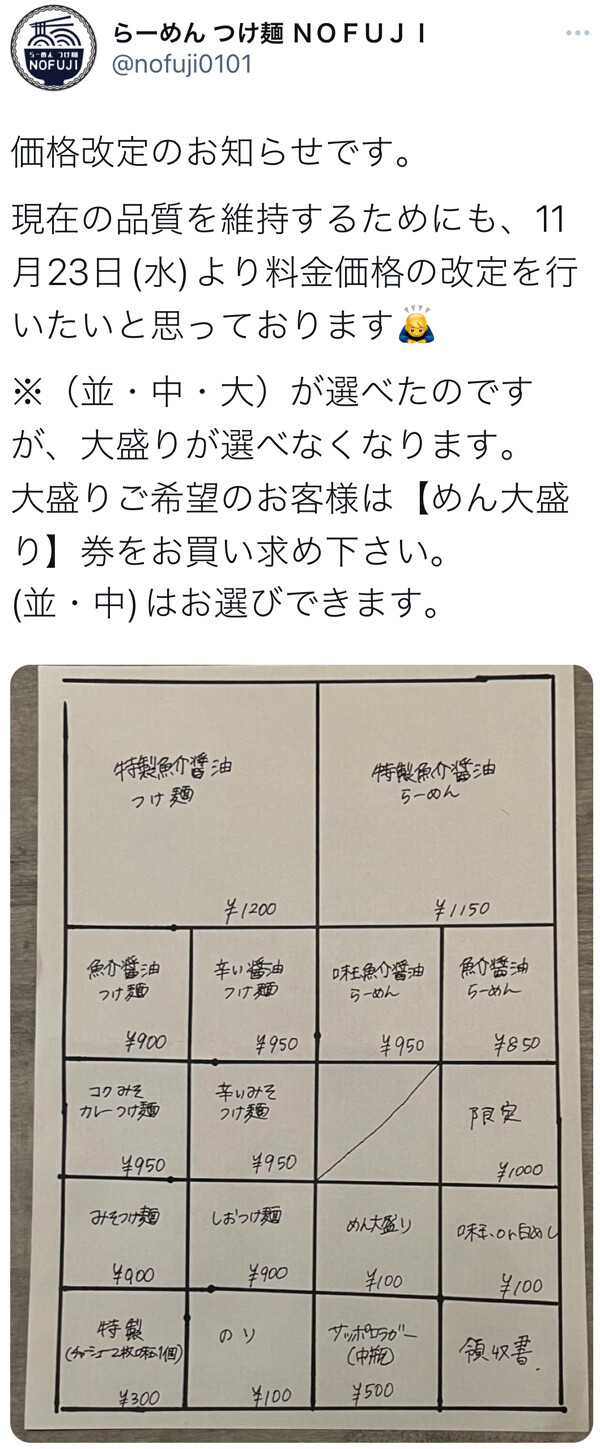 らーめん つけ麺
NOFUJI
らーめん つけ麺 ＮＯＦＵＪＩ
@nofuji0101
価格改定のお知らせです。
現在の品質を維持するためにも、11
月23日(水)より料金価格の改定を行
いたいと思っております🙇
※（並・中・大）が選べたのです
が、大盛りが選べなくなります。
大盛りご希望のお客様は【めん大盛
り】券をお買い求め下さい。
(並・中)はお選びできます。
特製魚介醤油
つけ麺
¥1200
特製魚介醤油
らーめん
¥1150
魚介醤油
つけ麺
¥900
辛い醤油
つけ麺
¥950
味玉魚介醤油
らーめん
¥950
魚介醤油
らーめん
¥850
コクみそ
カレーつけ麺
¥950
辛いみそ
つけ麺
¥950
限定
¥1000
みそつけ麺
¥900
しおつけ麺
¥900
めん大盛り
¥100
味玉、or白めし
¥100
特製
(チャーシュー2枚味玉1個)
¥300
のり
¥100
サッポロラガー
(中瓶)
¥500
領収書